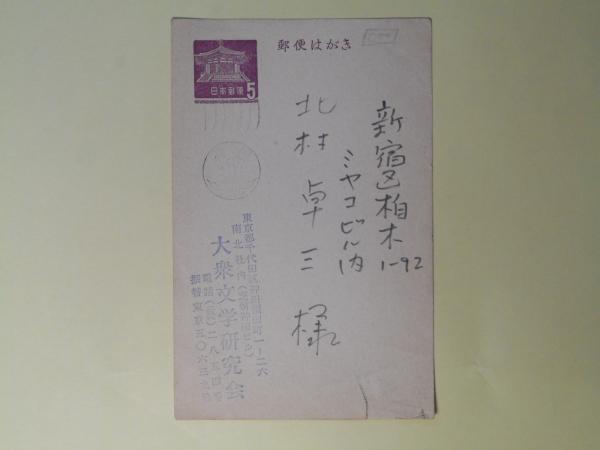 郵便はがき
日本郵便
5
新宿区柏木1-92
ミヤコビル内
北村卓三様
東京都千代田区神田 町一ー二六
南北社内
大衆文学研究会
電話 二八五四
振替東京五〇六三